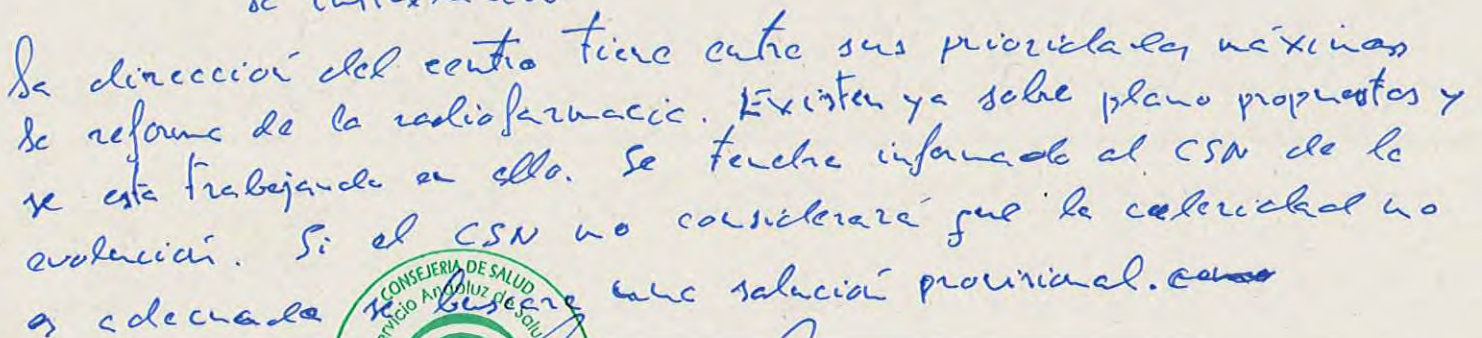 La dirección del centro tiene entre sus prioridades máximas
la reforma de la radiofarmacia. Existen ya sobre plano propuestas y
se está trabajando en ello. Se tendrá informado al CSN de la
evolución. Si el CSN no considerará que la celeridad no
es adecuada se buscará una solución provisional.
CONSEJERIA DE SALUD
Servicio Andaluz de Salud